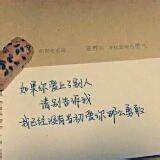 如果你爱上了别人
请别告诉我
我已经没有当初爱你那么勇敢